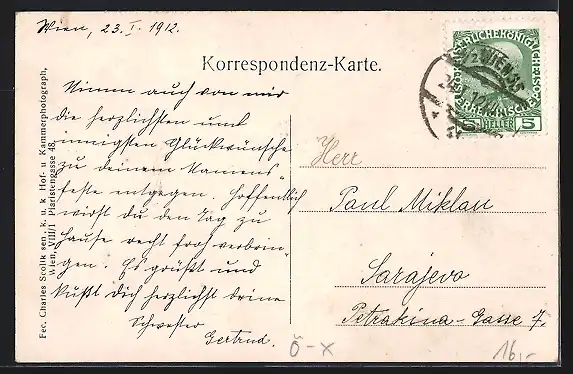 Wien, 23. I. 1912.
Korrespondenz-Karte.
Nimm auch von mir
die herzlichsten und
innigsten Glückwünsche
zu deinem Namens-
feste entgegen. Hoffentlich
wirst du den Tag zu
Hause recht froh verbrin-
gen. Es grüßt und
küßt Dich herzlichst deine
Schwester
Gertrud.
Fec. Charles Scolik sen., k. u. k. Hof- u. Kammerphotograph,
Wien, VIII/1 Piaristengasse 48.
5 HELLER 5
WIEN
Herr
Paul Miklau
Sarajevo
Petrakina-Gasse 7.
Ö-X
16,-